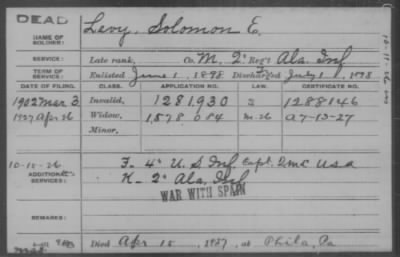 DEAD
NAME OF SOLDIER: Levy, Solomon E.
SERVICE: Late rank, Co. M, 2" Reg't Ala. Inf
TERM OF SERVICE: Enlisted June 1, 1898 Discharged July 1, 1898.
DATE OF FILING. CLASS. APPLICATION NO. CERTIFICATE NO.
1902 Mar 3 Invalid, 1281,930 1288146
1927 Apr 26 Widow, 1,578,084 A-7-13-27
Minor,
10-15-26
ADDITIONAL SERVICES: F- 4" U.S Inf Capt. QMC USA
K- 2" Ala. Inf
WAR WITH SPAIN
REMARKS:
Died Apr 15, 1927, at Phila, Pa